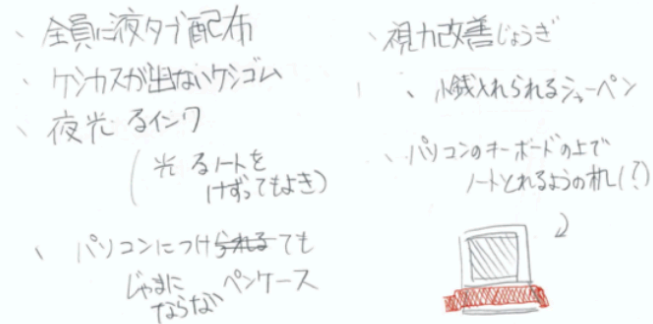 、全員に液タブ配布
、ケシカスが出ないケシゴム
、夜光るインク
(光るノートを
けずってもよき)
、パソコンにつけられるても
じゃまに
ならない ペンケース
、視力改善じょうぎ
、小銭入れられるシャーペン
、パソコンのキーボードの上で
ノートとれるようの机(?)